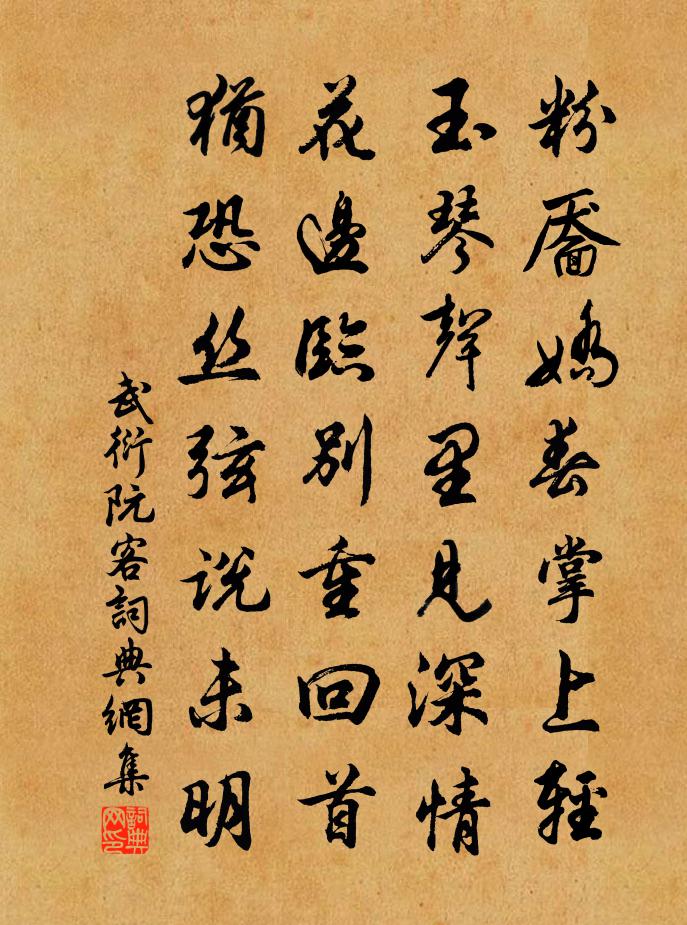 粉靨嬌春掌上輕
玉琴聲里見深情
花邊臨別重回首
猶恐丝弦説未明
武衍阮客詞典網集
詞典网印